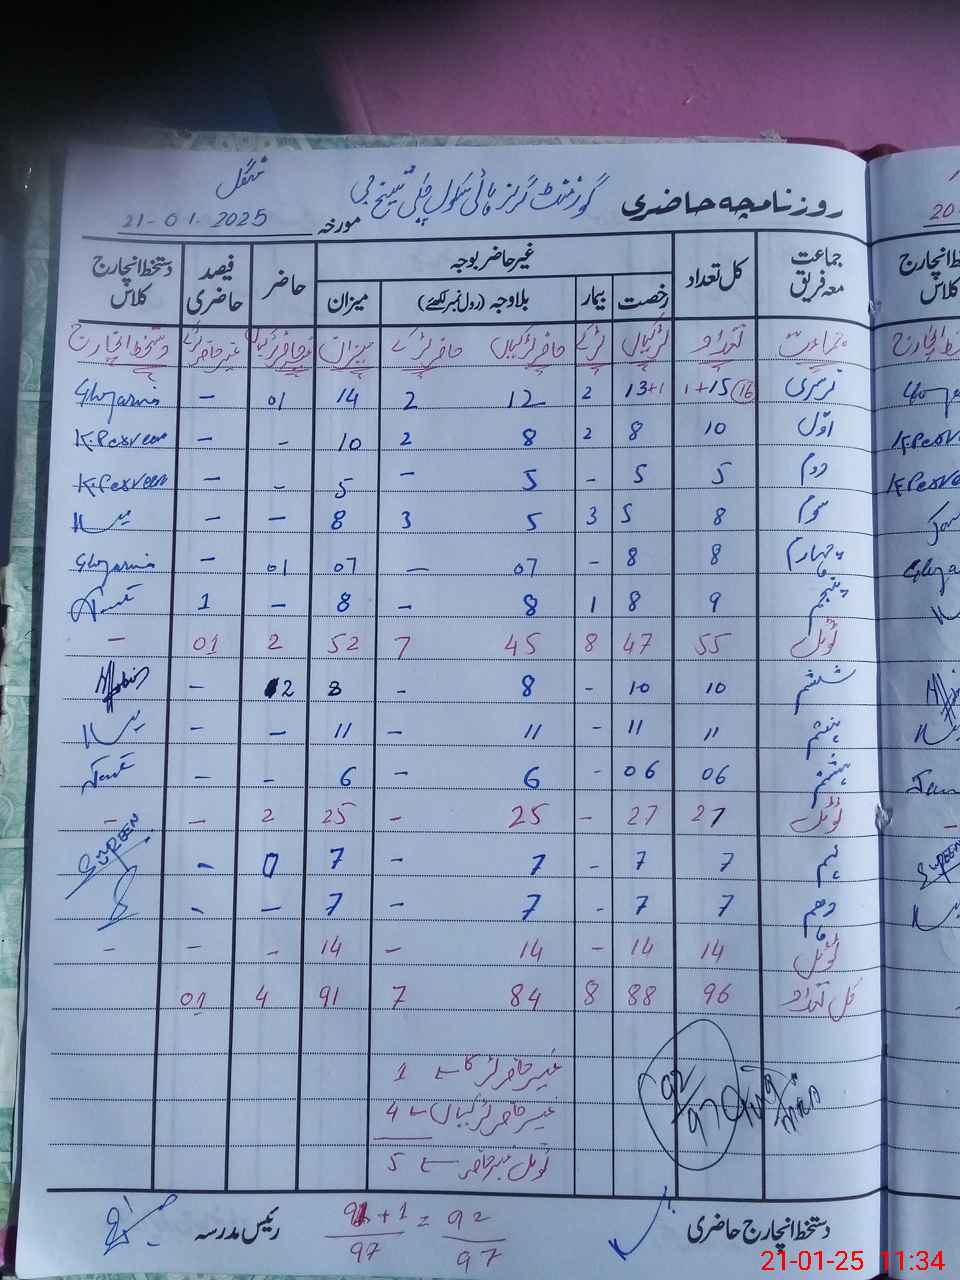 روزنامچہ حاضری گورنمنٹ گرلز ہائی سکول چکی شیخ جی منگل
مورخہ 21-01-2025
جماعت معہ فریق کل تعداد غیر حاضر بوجہ حاضر فیصد حاضری دستخط انچارج کلاس
رخصت بیمار بلاوجہ (رول نمبر لکھئے) میزان
جماعت تعداد لڑکیاں لڑکے حاضر لڑکیاں حاضر لڑکے میزان غیر حاضر لڑکیاں غیر حاضر لڑکے دستخط انچارج
نرسری 1+15 (16) 13+1 2 12 2 14 01 -
اوّل 10 8 2 8 2 10 - - K.Perveen
دوم 5 5 - 5 - 5 - - K.Perveen
سوم 8 5 3 5 3 8 - -
چہارم 8 8 - 07 - 07 01 -
پنجم 9 8 1 8 - 8 - 1
ٹوٹل 55 47 8 45 7 52 2 01 -
ششم 10 10 - 8 - 8 2 -
ہفتم 11 11 - 11 - 11 - -
ہشتم 06 06 - 6 - 6 - -
ٹوٹل 27 27 - 25 - 25 2 - -
نہم 7 7 - 7 - 7 0 - SUREEN
دہم 7 7 - 7 - 7 - -
ٹوٹل 14 14 - 14 - 14 - - -
کل تعداد 96 88 8 84 7 91 4 01
غیر حاضر لڑکا ← 1
غیر حاضر لڑکیاں ← 4
ٹوٹل غیر حاضر ← 5
92/97
دستخط انچارج حاضری 91+1/97 = 92/97 رئیس مدرسہ
21-01-25 11:34
20
دستخط انچارج
کلاس
K.Perve
SUREEN